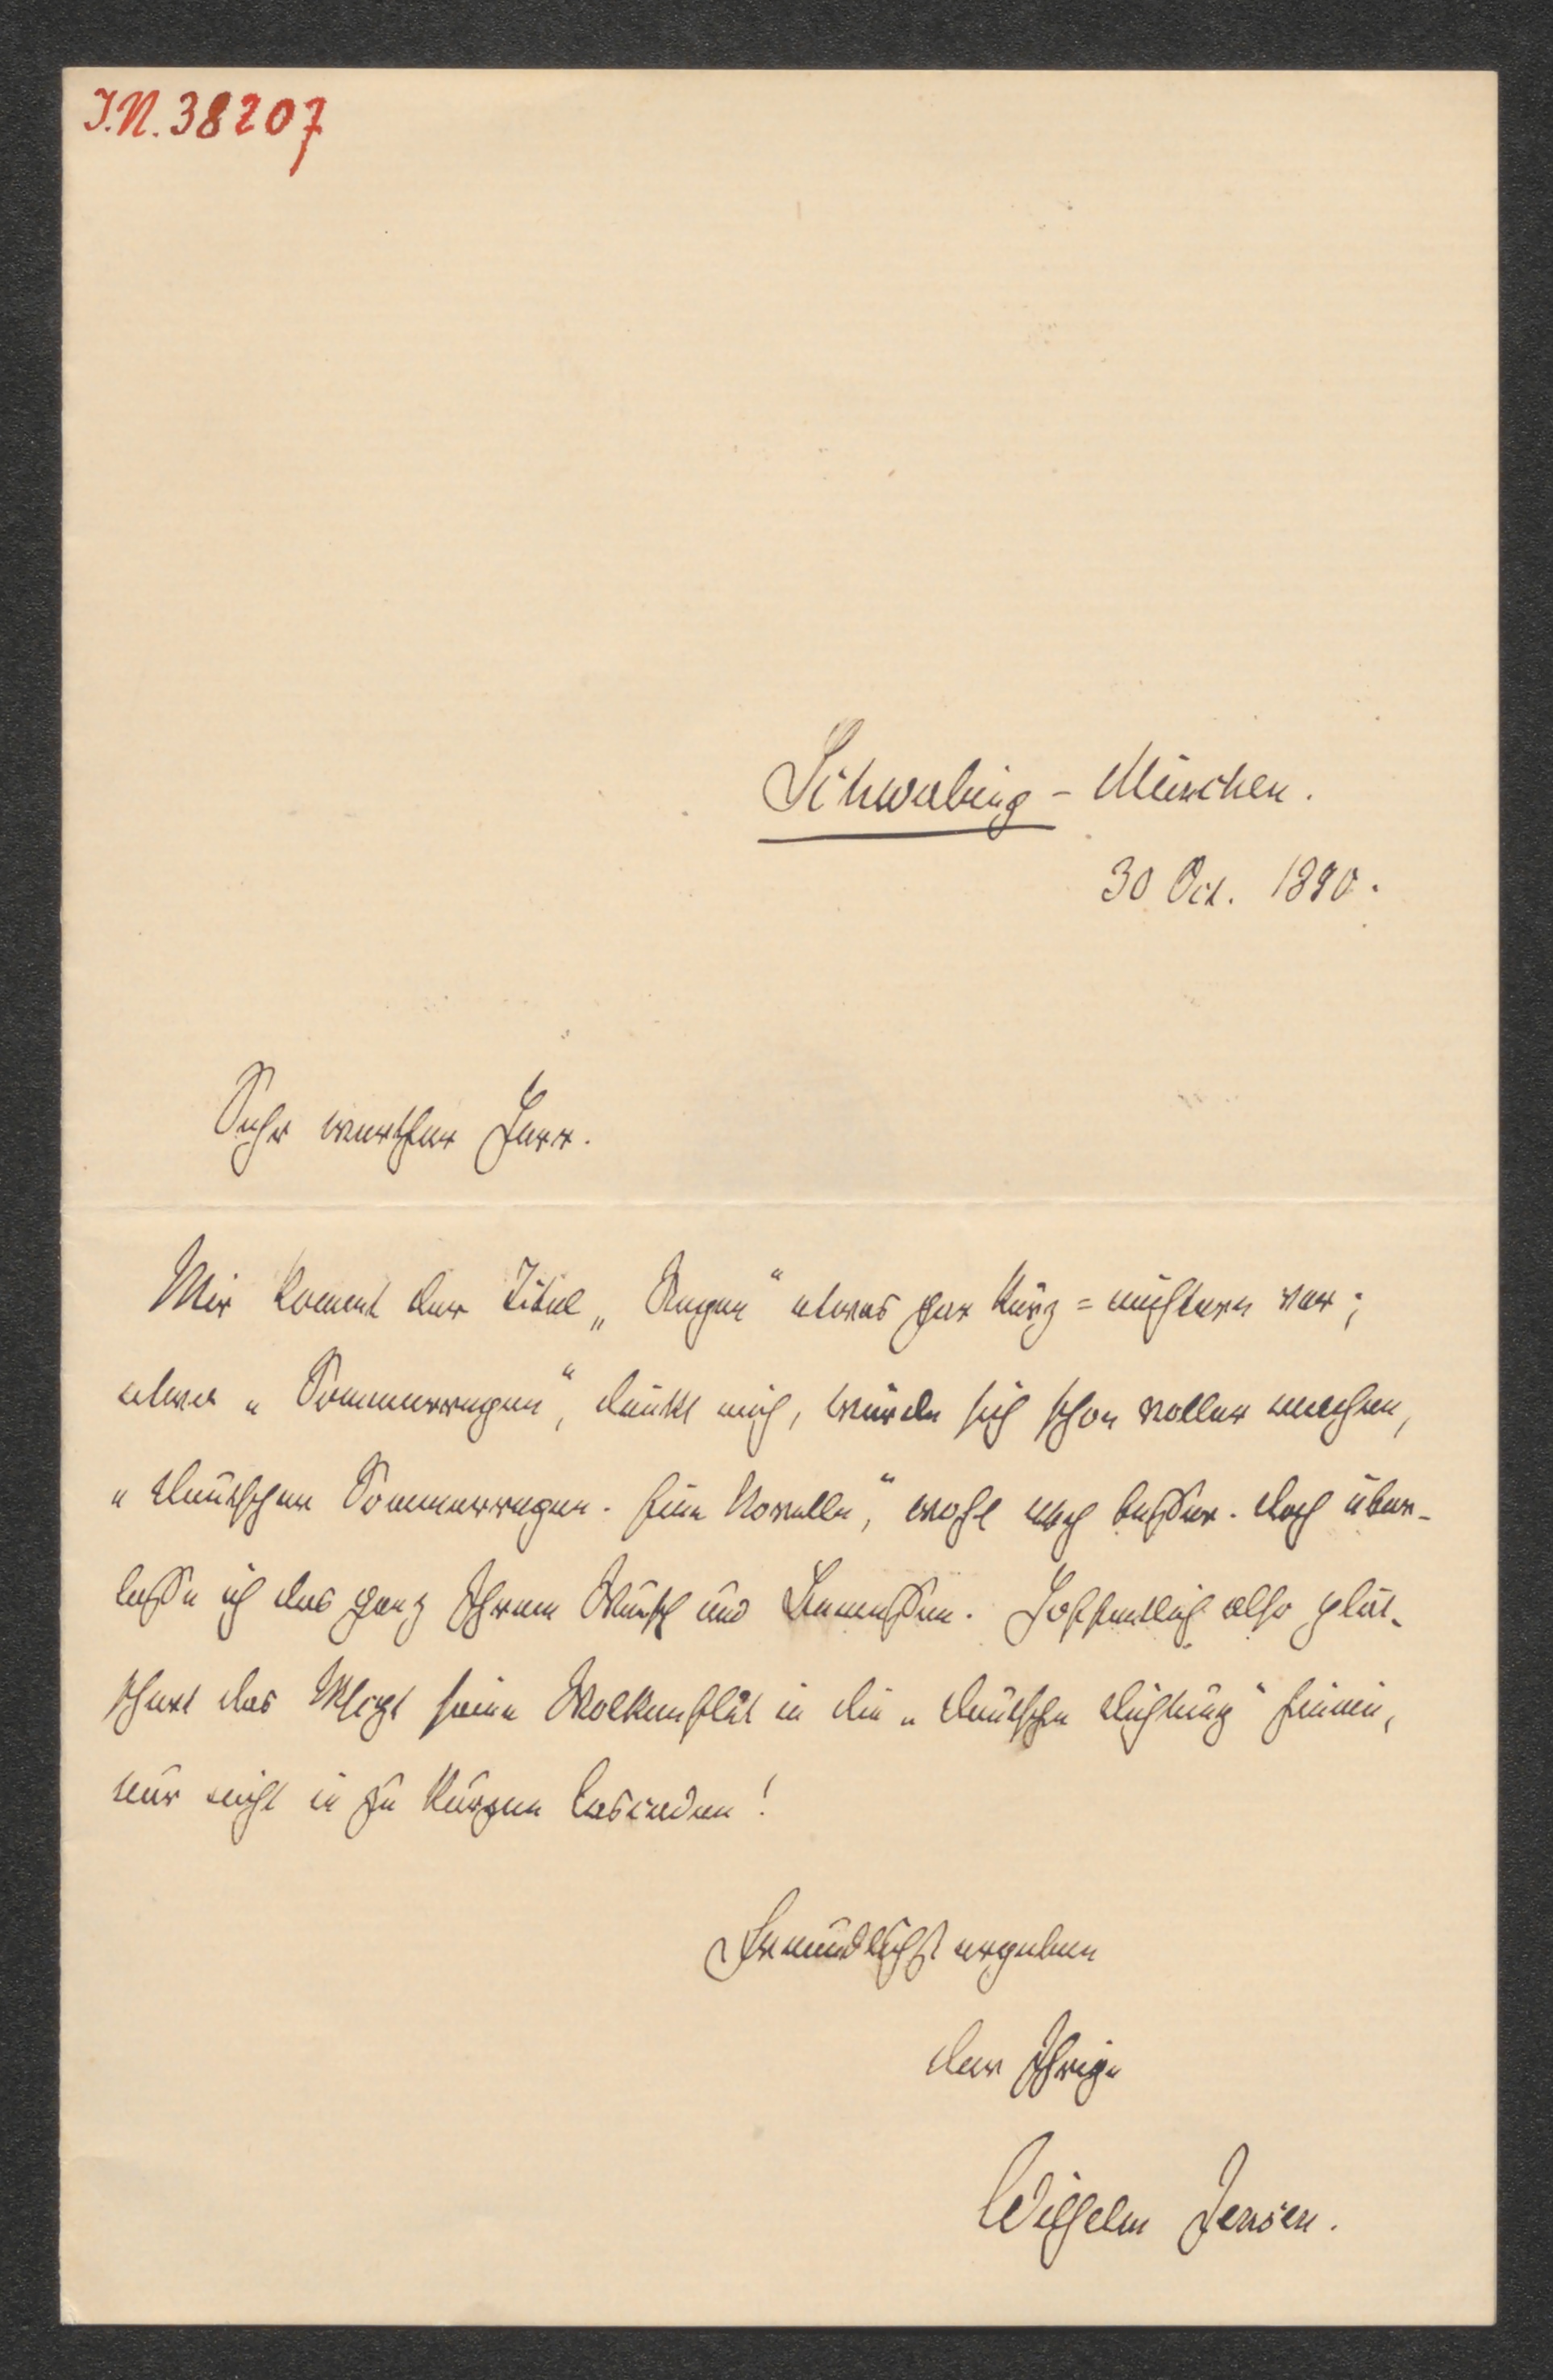 I.N. 38207
Schwabing - München.
30 Oct. 1890.
Sehr werther Herr.
Mir kommt der Titel „Regen“ etwas gar kurz = nüchtern vor;
etwa „Sommerregen“, dünkt mich, würde sich schon voller machen,
„Deutscher Sommerregen. Eine Novelle“, wohl noch besser. Doch über-
lasse ich das ganz Ihrem Wunsch und Ermessen. Hoffentlich also plät-
schert das seine Wolkenflut in die „Deutsche Dichtung“ hinein,
nur nicht in zu kurzen Cascaden!
Freundlichst ergeben
der Ihrige
Wilhelm Jensen.